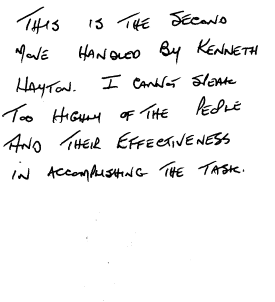 THIS IS THE SECOND
MOVE HANDLED BY KENNETH
HAYTON. I CANNOT SPEAK
TOO HIGHLY OF THE PEOPLE
AND THEIR EFFECTIVENESS
IN ACCOMPLISHING THE TASK.